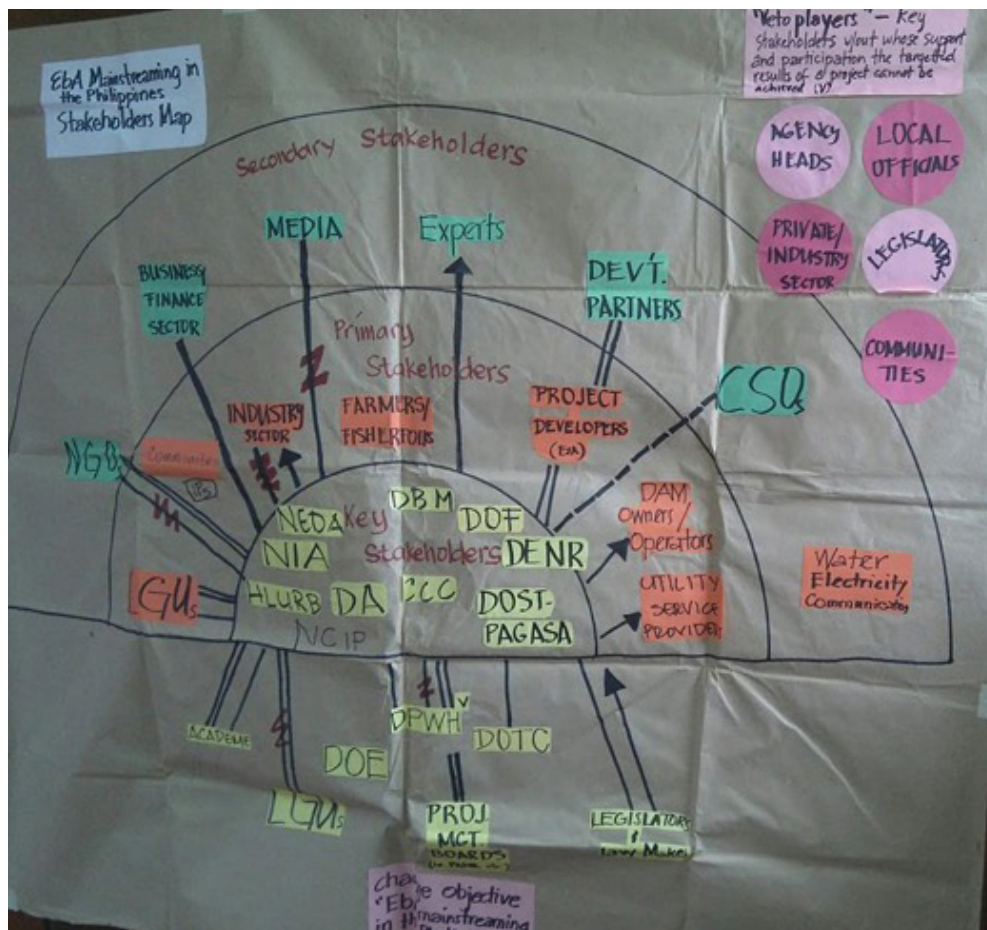 EbA Mainstreaming in
the Philippines
Stakeholders Map
"Veto players" — Key
stakeholders w/out whose support
and participation the targeted
results of a project cannot be
achieved (V)
AGENCY
HEADS
LOCAL
OFFICIALS
PRIVATE/
INDUSTRY
SECTOR
LEGISLATORS
COMMUNI-
TIES
Secondary Stakeholders
MEDIA
Experts
BUSINESS/
FINANCE
SECTOR
DEV'T.
PARTNERS
Primary
Stakeholders
INDUSTRY
SECTOR
FARMERS/
FISHERFOLKS
PROJECT
DEVELOPERS
CSOs
NGOs
Communities
IPs
NEDA
Key
Stakeholders
DBM
DOF
NIA
DENR
HLURB
DA
CCC
DOST-
PAGASA
NCIP
GUs
DAM
Owners/
Operators
UTILITY
SERVICE
PROVIDERS
Water
Electricity
Communication
ACADEME
DPWH V
DOTC
DOE
LGUs
PROJ.
MGT.
BOARDS
LEGISLATORS
&
Law Makers
objective
"EbA mainstreaming
in th